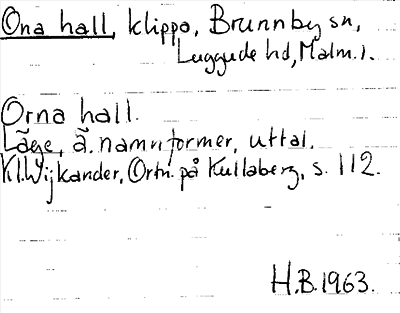 Ona hall, klippa, Brunnby sn,
Luggude hd, Malm. l.
Orna hall.
Läge, ä. namnformer, uttal.
Kl. Wijkander, Ortn. på Kullaberg, s. 112.
H.B. 1963.